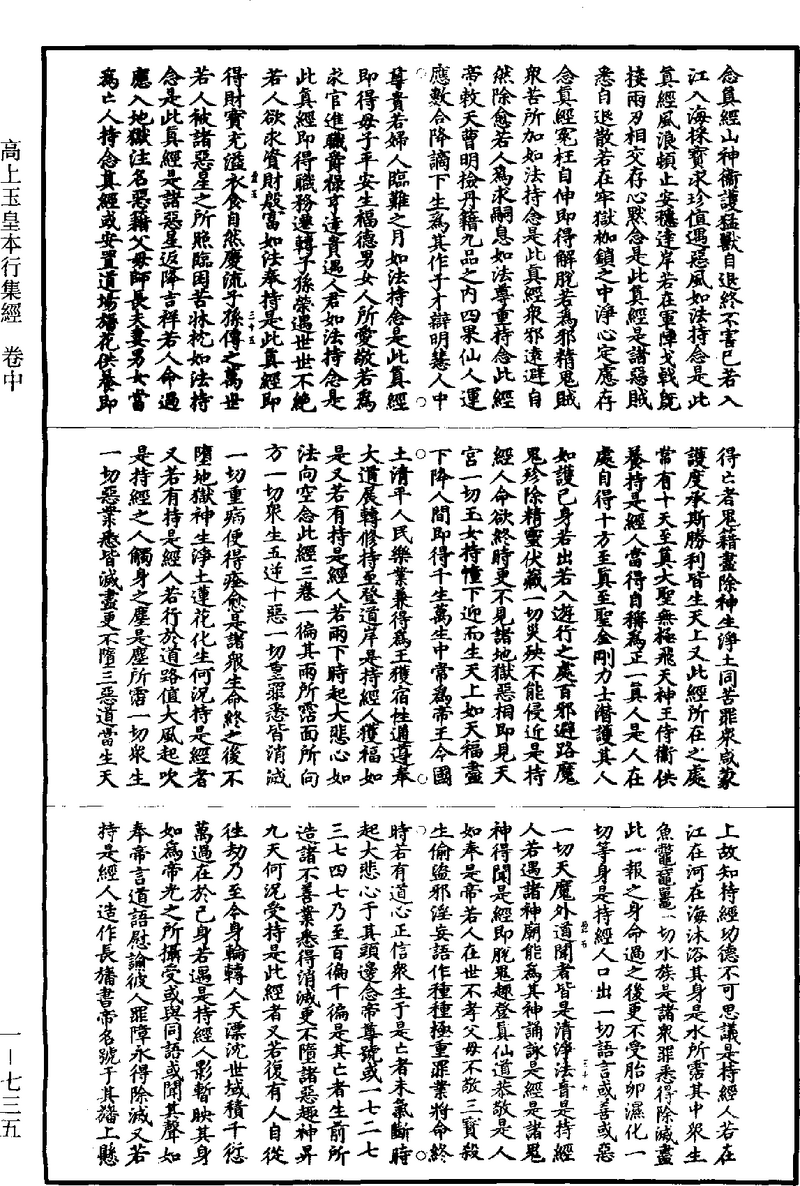 念真經山神衞護猛獸自退終不害已若入
江入海採寶求珍值遇惡風如法持念是此
真經風浪頓止安穩達岸若在軍陣戈戟既
接兩刃相交存心默念是此真經是諸惡賊
悉自退散若在牢獄枷鎖之中淨心定慮存
念真經冤枉自伸即得解脫若為邪精鬼賊
衆苦所加如法持念是此真經衆邪遠避自
然除愈若人為求嗣息如法尊重持念此經
帝敕天曹明檢丹籍九品之內四果仙人運
應數合降謫下生為其作子才辯明慧人中
尊貴若婦人臨難之月如法持念是此真經
即得母子平安生福德男女人所愛敬若為
求官進職爵祿亨達貴遇人君如法持念是
此真經即得職務遷轉子孫榮遇世世不絶
若人欲求資財殷富如法奉持是此真經即
得財寶充溢衣食自然慶流子孫傳之萬世
若人被諸惡星之所照臨困苦牀枕如法持
念是此真經是諸惡星返降吉祥若人命過
應入地獄注名惡籍父母師長夫妻男女當
為亡人持念真經或安置道場旛花供養即
得亡者鬼籍盡除神生淨土同苦罪衆咸蒙
護度承斯勝利皆生天上又此經所在之處
常有十天至真大聖無極飛天神王侍衞供
養持是經人當得自稱為正一真人是人在
處自得十方至真至聖金剛力士潛護其人
如護己身若出若入遊行之處百邪避路魔
鬼殄除精靈伏藏一切災殃不能侵近是持
經人命欲終時更不見諸地獄惡相即見天
宮一切玉女持幢下迎而生天上如天福盡
下降人間即得千生萬生中常為帝王令國
土清平人民樂業兼得為王獲宿性遵道奉
大道展轉修持至登道岸是持經人獲福如
是又若有持是經人若雨下時起大悲心如
法向空念此經三卷一徧其雨所霑面所向
方一切衆生五逆十惡一切重罪悉皆消滅
一切重病便得痊愈是諸衆生命終之後不
墮地獄神生淨土蓮花化生何況持是經者
又若有持是經人若行於道路值大風起吹
是持經之人觸身之塵是塵所霑一切衆生
一切惡業悉皆滅盡更不墮三惡道當生天
上故知持經功德不可思議是持經人若在
江在河在海沐浴其身是水所霑其中衆生
魚鼈黿鼉一切水族是諸衆罪悉得除滅盡
此一報之身命過之後更不受胎卵濕化一
切等身是持經人口出一切語言或善或惡
一切天魔外道聞者皆是清淨法音是持經
人若遇諸神廟能為其神誦詠是經是諸鬼
神得聞是經即脫鬼趣登真仙道恭敬是人
如奉是帝若人在世不孝父母不敬三寶殺
生偷盜邪淫妄語作種種極重罪業將命終
時若有道心正信衆生于是亡者未氣斷時
起大悲心于其頭邊念帝尊號或一七二七
三七四七乃至百徧千徧是其亡者生前所
造諸不善業悉得消滅更不墮諸惡趣神昇
九天何況受持是此經者又若復有人自從
往劫乃至今身輪轉人天漂沈世域積千愆
萬過在於己身若遇是持經人影暫映其身
如為帝光之所攝受或與同語或聞其聲如
奉帝言道語慰諭彼人罪障永得除滅又若
持是經人造作長旛書帝名號于其旛上懸
高上玉皇本行集經　卷中
一—七三五